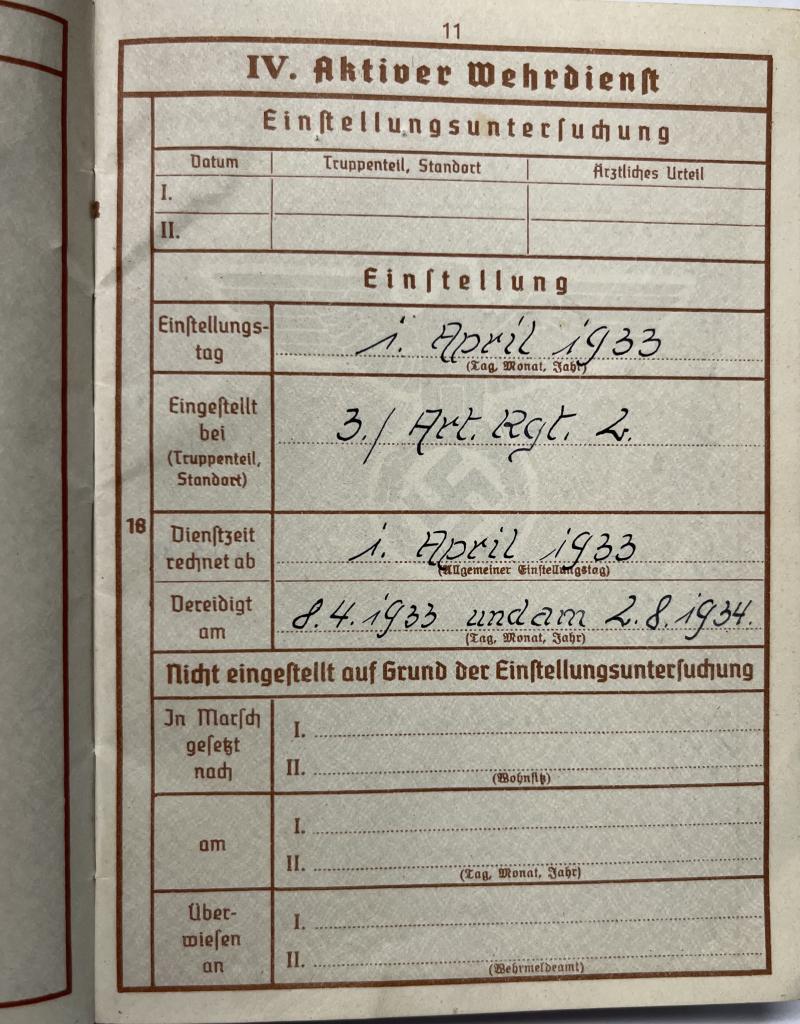 11
IV. Aktiver Wehrdienst
Einstellungsuntersuchung
Datum Truppenteil, Standort Ärztliches Urteil
I.
II.
Einstellung
Einstellungs-
tag
1. April 1933
(Tag, Monat, Jahr)
Eingestellt
bei
(Truppenteil,
Standort)
3./ Art. Rgt. 2.
18
Dienstzeit
rechnet ab
1. April 1933
(Allgemeiner Einstellungstag)
Vereidigt
am
8.4.1933 und am 2.8.1934.
(Tag, Monat, Jahr)
Nicht eingestellt auf Grund der Einstellungsuntersuchung
In Marsch
gesetzt
nach
I.
II.
(Wohnsitz)
am
I.
II.
(Tag, Monat, Jahr)
Über-
wiesen
an
I.
II.
(Wehrmeldeamt)